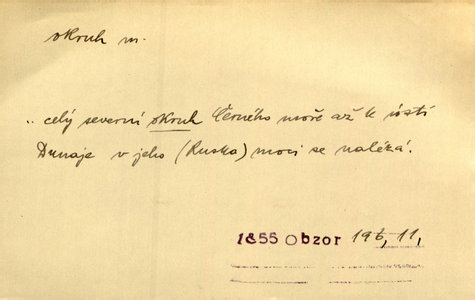 okruh m.
„ celý severní okruh Černého moře až k ústí
Dunaje v jeho (Ruska) moci se nalézá.
1855 Obzor 196, 11,